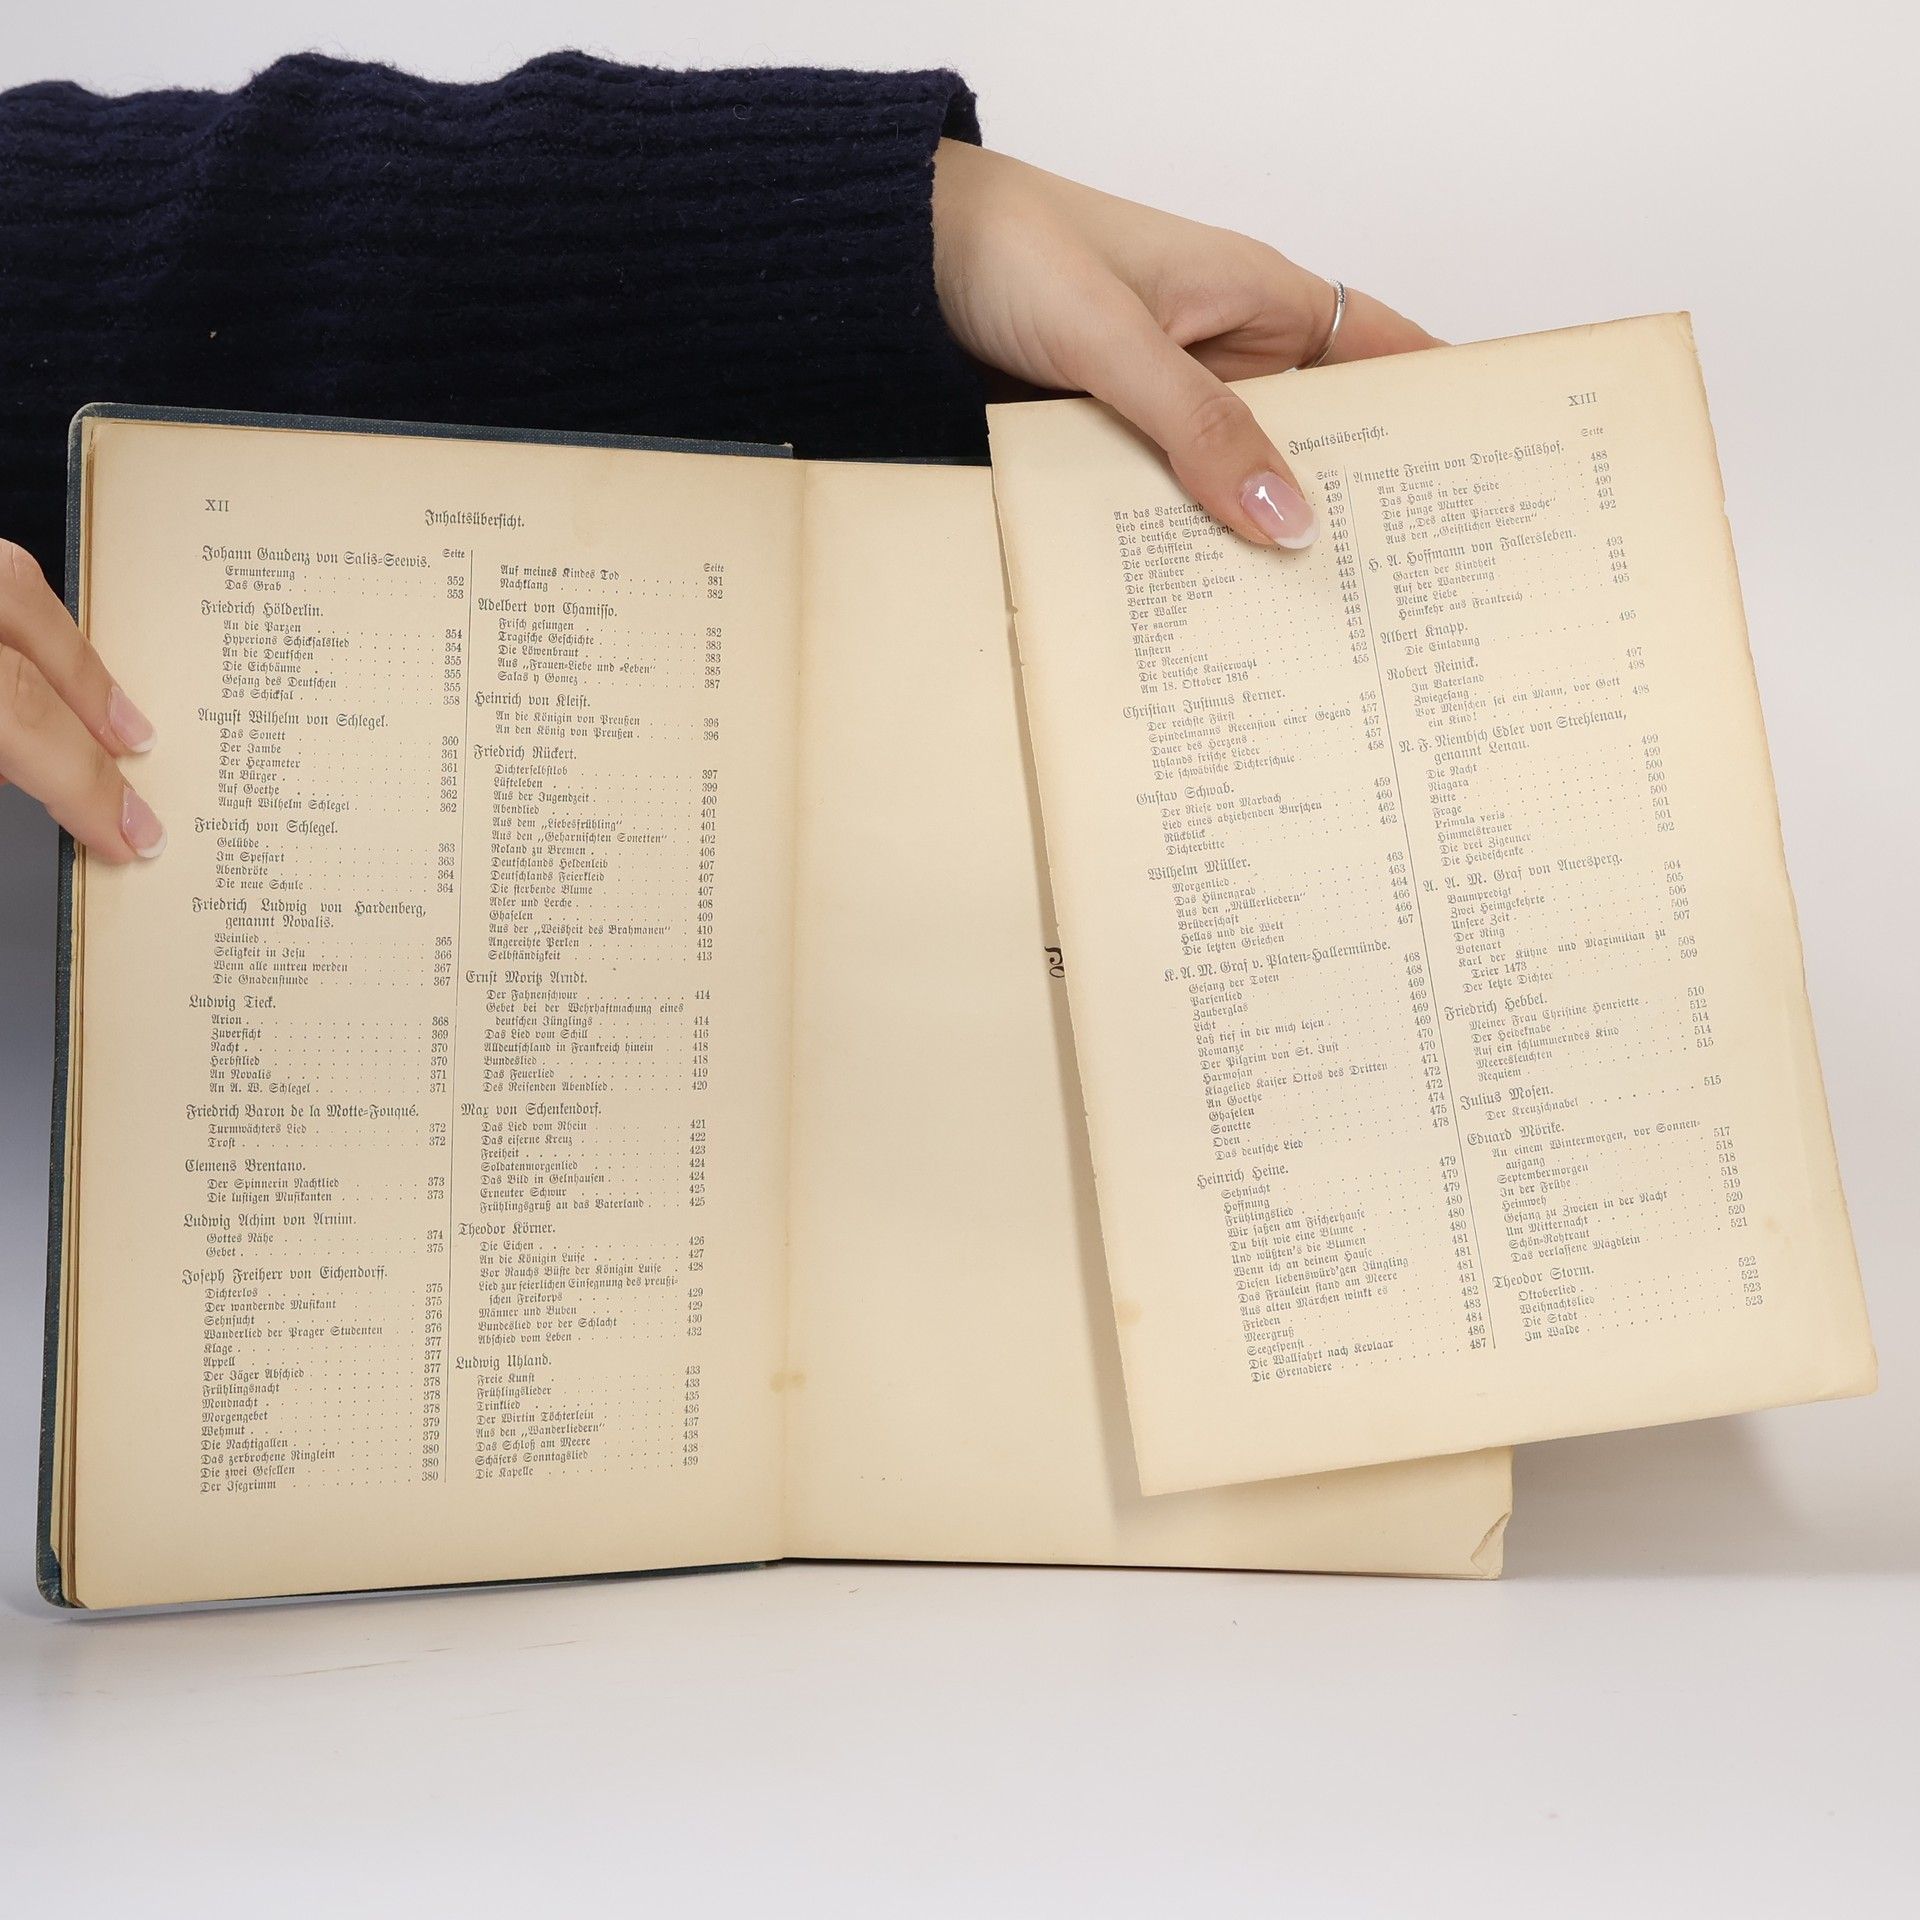 XII
Inhaltsübersicht.
Seite
Johann Gaudenz von Salis-Seewis.
Ermunterung . . . 352
Das Grab . . . 353
Friedrich Hölderlin.
An die Parzen . . . 354
Hyperions Schicksalslied . . . 354
An die Deutschen . . . 355
Die Eichbäume . . . 355
Gesang des Deutschen . . . 355
Das Schicksal . . . 358
August Wilhelm von Schlegel.
Das Sonett . . . 360
Der Jambe . . . 361
Der Hexameter . . . 361
An Bürger . . . 361
Auf Goethe . . . 362
August Wilhelm Schlegel . . . 362
Friedrich von Schlegel.
Gelübde . . . 363
Im Spessart . . . 363
Abendröte . . . 364
Die neue Schule . . . 364
Friedrich Ludwig von Hardenberg,
genannt Novalis.
Weinlied . . . 365
Seligkeit in Jesu . . . 366
Wenn alle untreu werden . . . 367
Die Gnadenstunde . . . 367
Ludwig Tieck.
Arion . . . 368
Zuversicht . . . 369
Nacht . . . 370
Herbstlied . . . 370
An Novalis . . . 371
An A. W. Schlegel . . . 371
Friedrich Baron de la Motte-Fouqué.
Turmwächters Lied . . . 372
Trost . . . 372
Clemens Brentano.
Der Spinnerin Nachtlied . . . 373
Die lustigen Musikanten . . . 373
Ludwig Achim von Arnim.
Gottes Nähe . . . 374
Gebet . . . 375
Joseph Freiherr von Eichendorff.
Dichterlos . . . 375
Der wandernde Musikant . . . 375
Sehnsucht . . . 376
Wanderlied der Prager Studenten . . . 376
Klage . . . 377
Appell . . . 377
Der Jäger Abschied . . . 377
Frühlingsnacht . . . 378
Mondnacht . . . 378
Morgengebet . . . 378
Wehmut . . . 379
Die Nachtigallen . . . 379
Das zerbrochene Ringlein . . . 380
Die zwei Gesellen . . . 380
Der Isegrimm . . . 380
Seite
Auf meines Kindes Tod . . . 381
Nachklang . . . 382
Adelbert von Chamisso.
Frisch gesungen . . . 382
Tragische Geschichte . . . 383
Die Löwenbraut . . . 383
Aus „Frauen-Liebe und -Leben“ . . . 385
Salas y Gomez . . . 387
Heinrich von Kleist.
An die Königin von Preußen . . . 396
An den König von Preußen . . . 396
Friedrich Rückert.
Dichterselbstlob . . . 397
Lüfteleben . . . 399
Aus der Jugendzeit . . . 400
Abendlied . . . 401
Aus dem „Liebesfrühling“ . . . 401
Aus den „Geharnischten Sonetten“ . . . 402
Roland zu Bremen . . . 406
Deutschlands Heldenleib . . . 407
Deutschlands Feierkleid . . . 407
Die sterbende Blume . . . 407
Adler und Lerche . . . 408
Ghaselen . . . 409
Aus der „Weisheit des Brahmanen“ . . . 410
Angereihte Perlen . . . 412
Selbständigkeit . . . 413
Ernst Moritz Arndt.
Der Fahnenschwur . . . 414
Gebet bei der Wehrhaftmachung eines
deutschen Jünglings . . . 414
Das Lied vom Schill . . . 416
Alldeutschland in Frankreich hinein . . . 418
Bundeslied . . . 418
Das Feuerlied . . . 419
Des Reisenden Abendlied . . . 420
Max von Schenkendorf.
Das Lied vom Rhein . . . 421
Das eiserne Kreuz . . . 422
Freiheit . . . 423
Soldatenmorgenlied . . . 424
Das Bild in Gelnhausen . . . 424
Erneuter Schwur . . . 425
Frühlingsgruß an das Vaterland . . . 425
Theodor Körner.
Die Eichen . . . 426
An die Königin Luise . . . 427
Vor Rauchs Büste der Königin Luise . . . 428
Lied zur feierlichen Einsegnung des preußi-
schen Freikorps . . . 429
Männer und Buben . . . 429
Bundeslied vor der Schlacht . . . 430
Abschied vom Leben . . . 432
Ludwig Uhland.
Freie Kunst . . . 433
Frühlingslieder . . . 433
Trinklied . . . 435
Der Wirtin Töchterlein . . . 436
Aus den „Wanderliedern“ . . . 437
Das Schloß am Meere . . . 438
Schäfers Sonntagslied . . . 438
Die Kapelle . . . 439
XIII
Inhaltsübersicht.
Seite
An das Vaterland 439
Lied eines deutschen 439
Die deutsche 439
Das Schifflein . . . 440
Die verlorene Kirche . . . 440
Der Räuber . . . 441
Die sterbenden Helden . . . 442
Bertran de Born . . . 443
Der Waller . . . 444
Ver sacrum . . . 445
Märchen . . . 448
Unstern . . . 451
Der Rezensent . . . 452
Die deutsche Kaiserwahl . . . 452
Am 18. Oktober 1816 . . . 455
Christian Justinus Kerner.
Der reichste Fürst . . . 456
Spindelmanns Recension einer Gegend 457
Dauer des Herzens . . . 457
Uhlands frische Lieder . . . 457
Die schwäbische Dichterschule . . . 458
Gustav Schwab.
Der Riese von Marbach . . . 459
Lied eines abziehenden Burschen . . . 460
Rückblick . . . 462
Dichterbitte . . . 462
Wilhelm Müller.
Morgenlied . . . 463
Das Hünengrab . . . 463
Aus den „Müllerliedern“ . . . 464
Brüderschaft . . . 466
Hellas und die Welt . . . 466
Die letzten Griechen . . . 467
K. A. M. Graf v. Platen-Hallermünde.
Gesang der Toten . . . 468
Parsenlied . . . 468
Zauberglas . . . 469
Licht . . . 469
Laß tief in dir mich lesen . . . 469
Romanze . . . 469
Der Pilgrim von St. Just . . . 470
Harmosan . . . 470
Klagelied Kaiser Ottos des Dritten . . . 471
An Goethe . . . 472
Ghaselen . . . 472
Sonette . . . 474
Oden . . . 475
Das deutsche Lied . . . 478
Heinrich Heine.
Sehnsucht . . . 479
Hoffnung . . . 479
Frühlingslied . . . 479
Wir saßen am Fischerhause . . . 480
Du bist wie eine Blume . . . 480
Und wüßten's die Blumen . . . 480
Wenn ich an deinem Hause . . . 481
Diesen liebenswürd'gen Jüngling . . . 481
Das Fräulein stand am Meere . . . 481
Aus alten Märchen winkt es . . . 481
Frieden . . . 482
Meergruß . . . 483
Seegespenst . . . 484
Die Wallfahrt nach Kevlaar . . . 486
Die Grenadiere . . . 487
Seite
Annette Freiin von Droste-Hülshof.
Am Turme . . . 488
Das Haus in der Heide . . . 489
Die junge Mutter . . . 490
Aus „Des alten Pfarrers Woche“ . . . 491
Aus den „Geistlichen Liedern“ . . . 492
H. A. Hoffmann von Fallersleben.
Garten der Kindheit . . . 493
Auf der Wanderung . . . 494
Meine Liebe . . . 494
Heimkehr aus Frankreich . . . 495
Albert Knapp.
Die Einladung . . . 495
Robert Reinick.
Im Vaterland . . . 497
Zwiegesang . . . 498
Vor Menschen sei ein Mann, vor Gott
ein Kind! . . . 498
N. F. Niembsch Edler von Strehlenau,
genannt Lenau.
Die Nacht . . . 499
Niagara . . . 499
Bitte . . . 500
Frage . . . 500
Primula veris . . . 500
Himmelstrauer . . . 501
Die drei Zigeuner . . . 501
Die Heideschenke . . . 502
A. A. M. Graf von Auersperg.
Baumpredigt . . . 504
Zwei Heimgekehrte . . . 505
Unsere Zeit . . . 506
Der Ring . . . 506
Botenart . . . 507
Karl der Kühne und Maximilian zu
Trier 1473 . . . 508
Der letzte Dichter . . . 509
Friedrich Hebbel.
Meiner Frau Christine Henriette . . . 510
Der Heideknabe . . . 512
Auf ein schlummerndes Kind . . . 514
Meeresleuchten . . . 514
Requiem . . . 515
Julius Mosen.
Der Kreuzschnabel . . . 515
Eduard Mörike.
An einem Wintermorgen, vor Sonnen-
aufgang . . . 517
Septembermorgen . . . 518
In der Frühe . . . 518
Heimweh . . . 518
Gesang zu Zweien in der Nacht . . . 519
Um Mitternacht . . . 520
Schön-Rohtraut . . . 520
Das verlassene Mägdlein . . . 521
Theodor Storm.
Oktoberlied . . . 522
Weihnachtslied . . . 522
Die Stadt . . . 523
Im Walde . . . 523